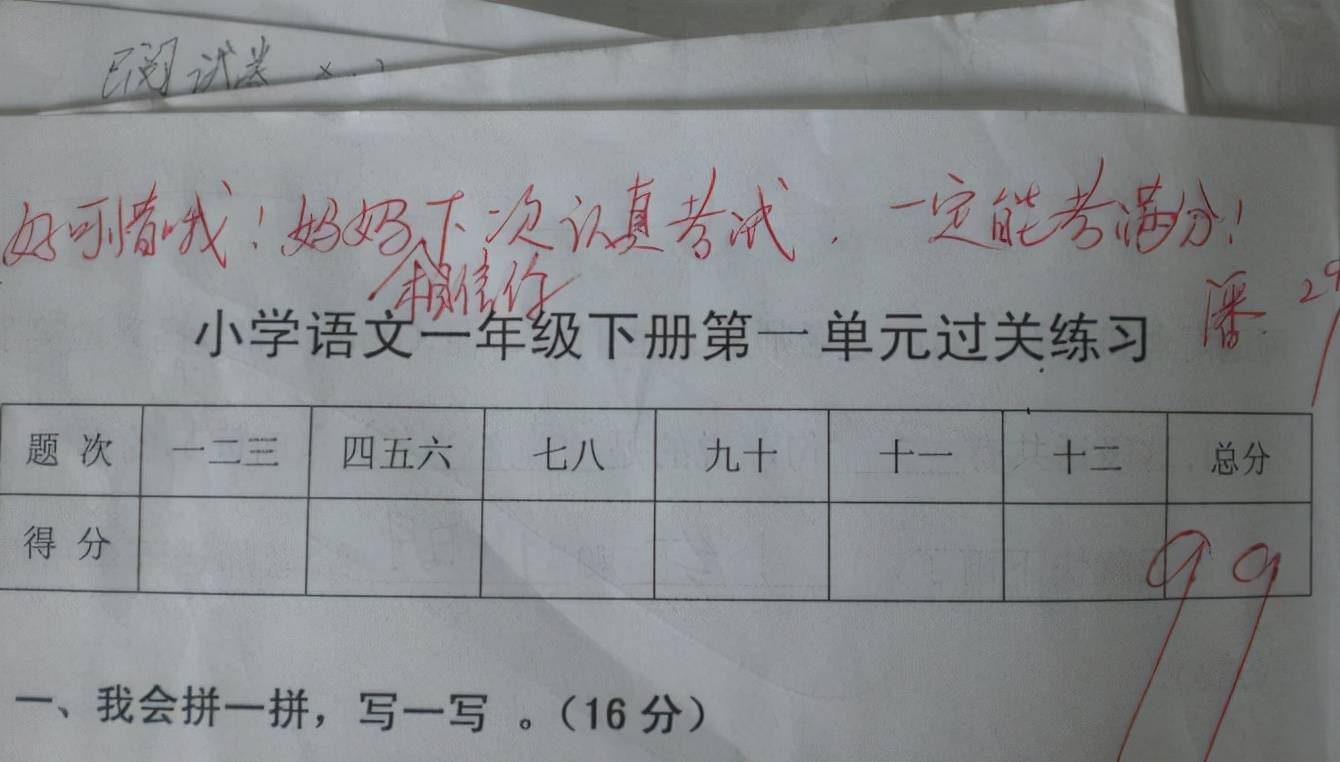 已阅试卷
好可惜哦！妈妈相信你下次认真考试，一定能考满分！
潘 29
小学语文一年级下册第一单元过关练习
题次 一二三 四五六 七八 九十 十一 十二 总分
得分 99
一、我会拼一拼，写一写。（16分）